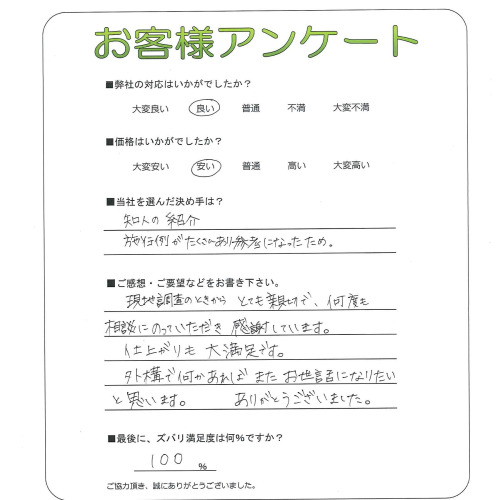 お客様アンケート
■弊社の対応はいかがでしたか？
大変良い 良い 普通 不満 大変不満
■価格はいかがでしたか？
大変安い 安い 普通 高い 大変高い
■当社を選んだ決め手は？
知人の紹介
施行例がたくさんあり参考になったため。
■ご感想・ご要望などをお書き下さい。
現地調査のときから とても親切で、何度も
相談にのっていただき 感謝しています。
仕上がりも 大満足です。
外構で何かあれば また お世話になりたい
と思います。 ありがとうございました。
■最後に、ズバリ満足度は何％ですか？
100 %
ご協力頂き、誠にありがとうございました。